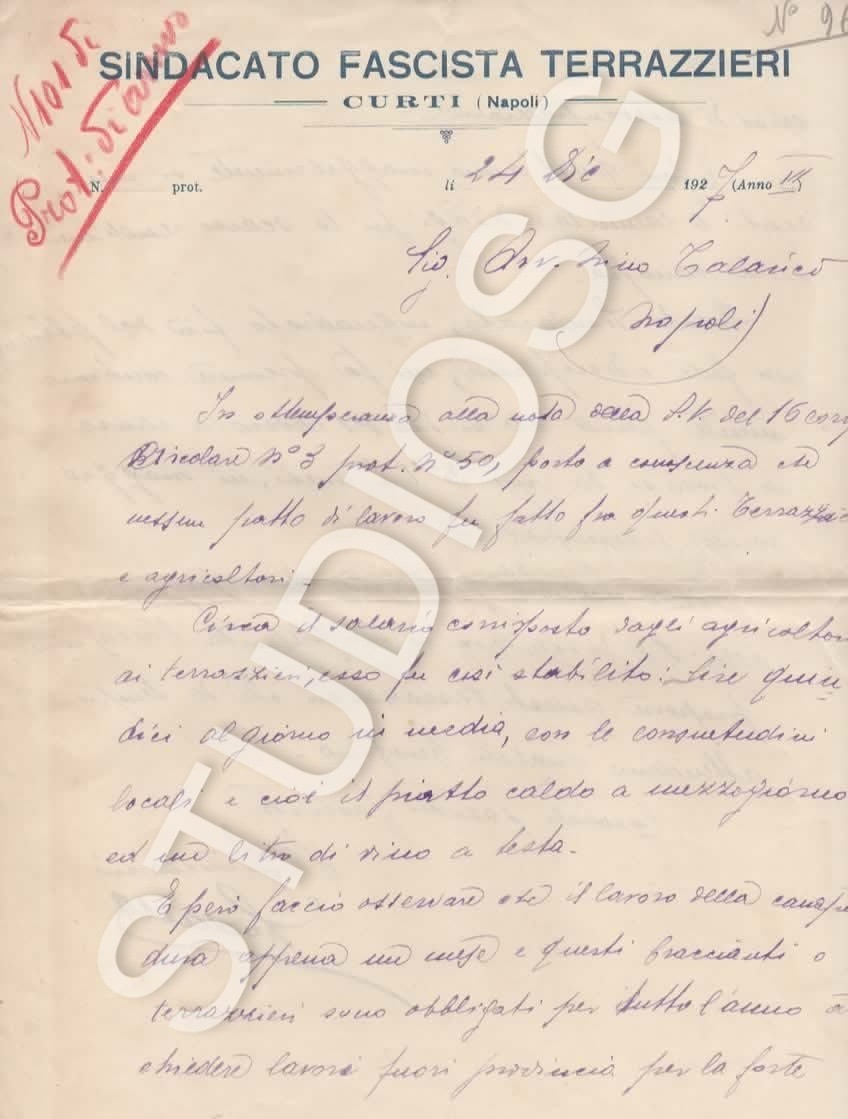 Nº 96
N 101 di
Prot: di arrivo
SINDACATO FASCISTA TERRAZZIERI
CURTI (Napoli)
N. prot. lì 24 Dic 1927 (Anno VI)
Sig. Avv. Nino Calarico
Napoli
In ottemperanza alla nota della S.V. del 16 corr
Circolare Nº 3 prot. Nº 50, porto a conoscenza che
nessun patto di lavoro fu fatto fra questi Terrazzie
e agricoltori.
Circa il salario corrisposto dagli agricoltori
ai terrazzieri, esso fu così stabilito: Lire quin
dici al giorno in media, con le consuetudini
locali e cioè il piatto caldo a mezzogiorno
ed un litro di vino a testa.
E però faccio osservare che il lavoro della canape
dura appena un mese e questi braccianti o
terrazzieri sono obbligati per tutto l'anno a
chiedere lavoro fuori provincia per la forte
STUDIOSG